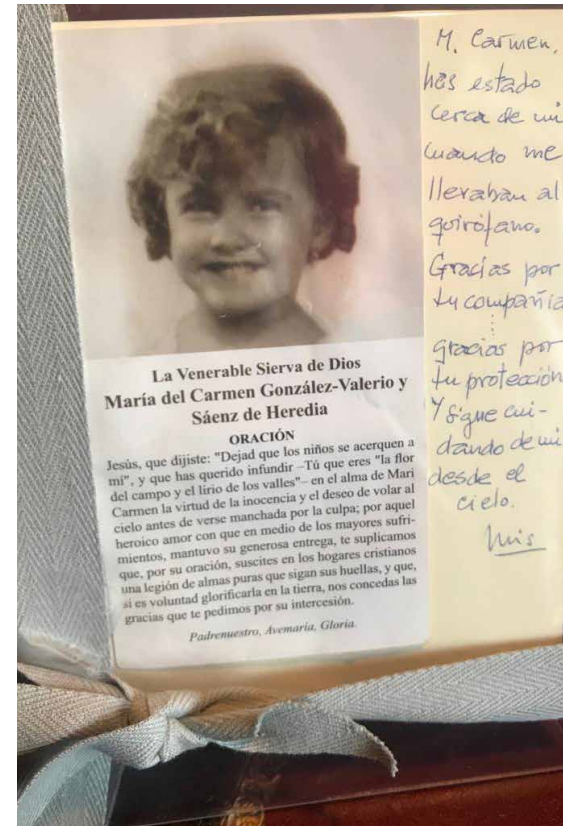 La Venerable Sierva de Dios
María del Carmen González-Valerio y
Sáenz de Heredia
ORACIÓN
Jesús, que dijiste: "Dejad que los niños se acerquen a
mí", y que has querido infundir –Tú que eres "la flor
del campo y el lirio de los valles"– en el alma de Mari
Carmen la virtud de la inocencia y el deseo de volar al
cielo antes de verse manchada por la culpa; por aquel
heroico amor con que en medio de los mayores sufri-
mientos, mantuvo su generosa entrega, te suplicamos
que, por su oración, suscites en los hogares cristianos
una legión de almas puras que sigan sus huellas, y que,
si es voluntad glorificarla en la tierra, nos concedas las
gracias que te pedimos por su intercesión.
Padrenuestro, Avemaría, Gloria.
M. Carmen,
has estado
cerca de mi
cuando me
llevaban al
quirófano.
Gracias por
tu compañía
gracias por
tu protección
Y sigue cui-
dando de mi
desde el
cielo.
Luis